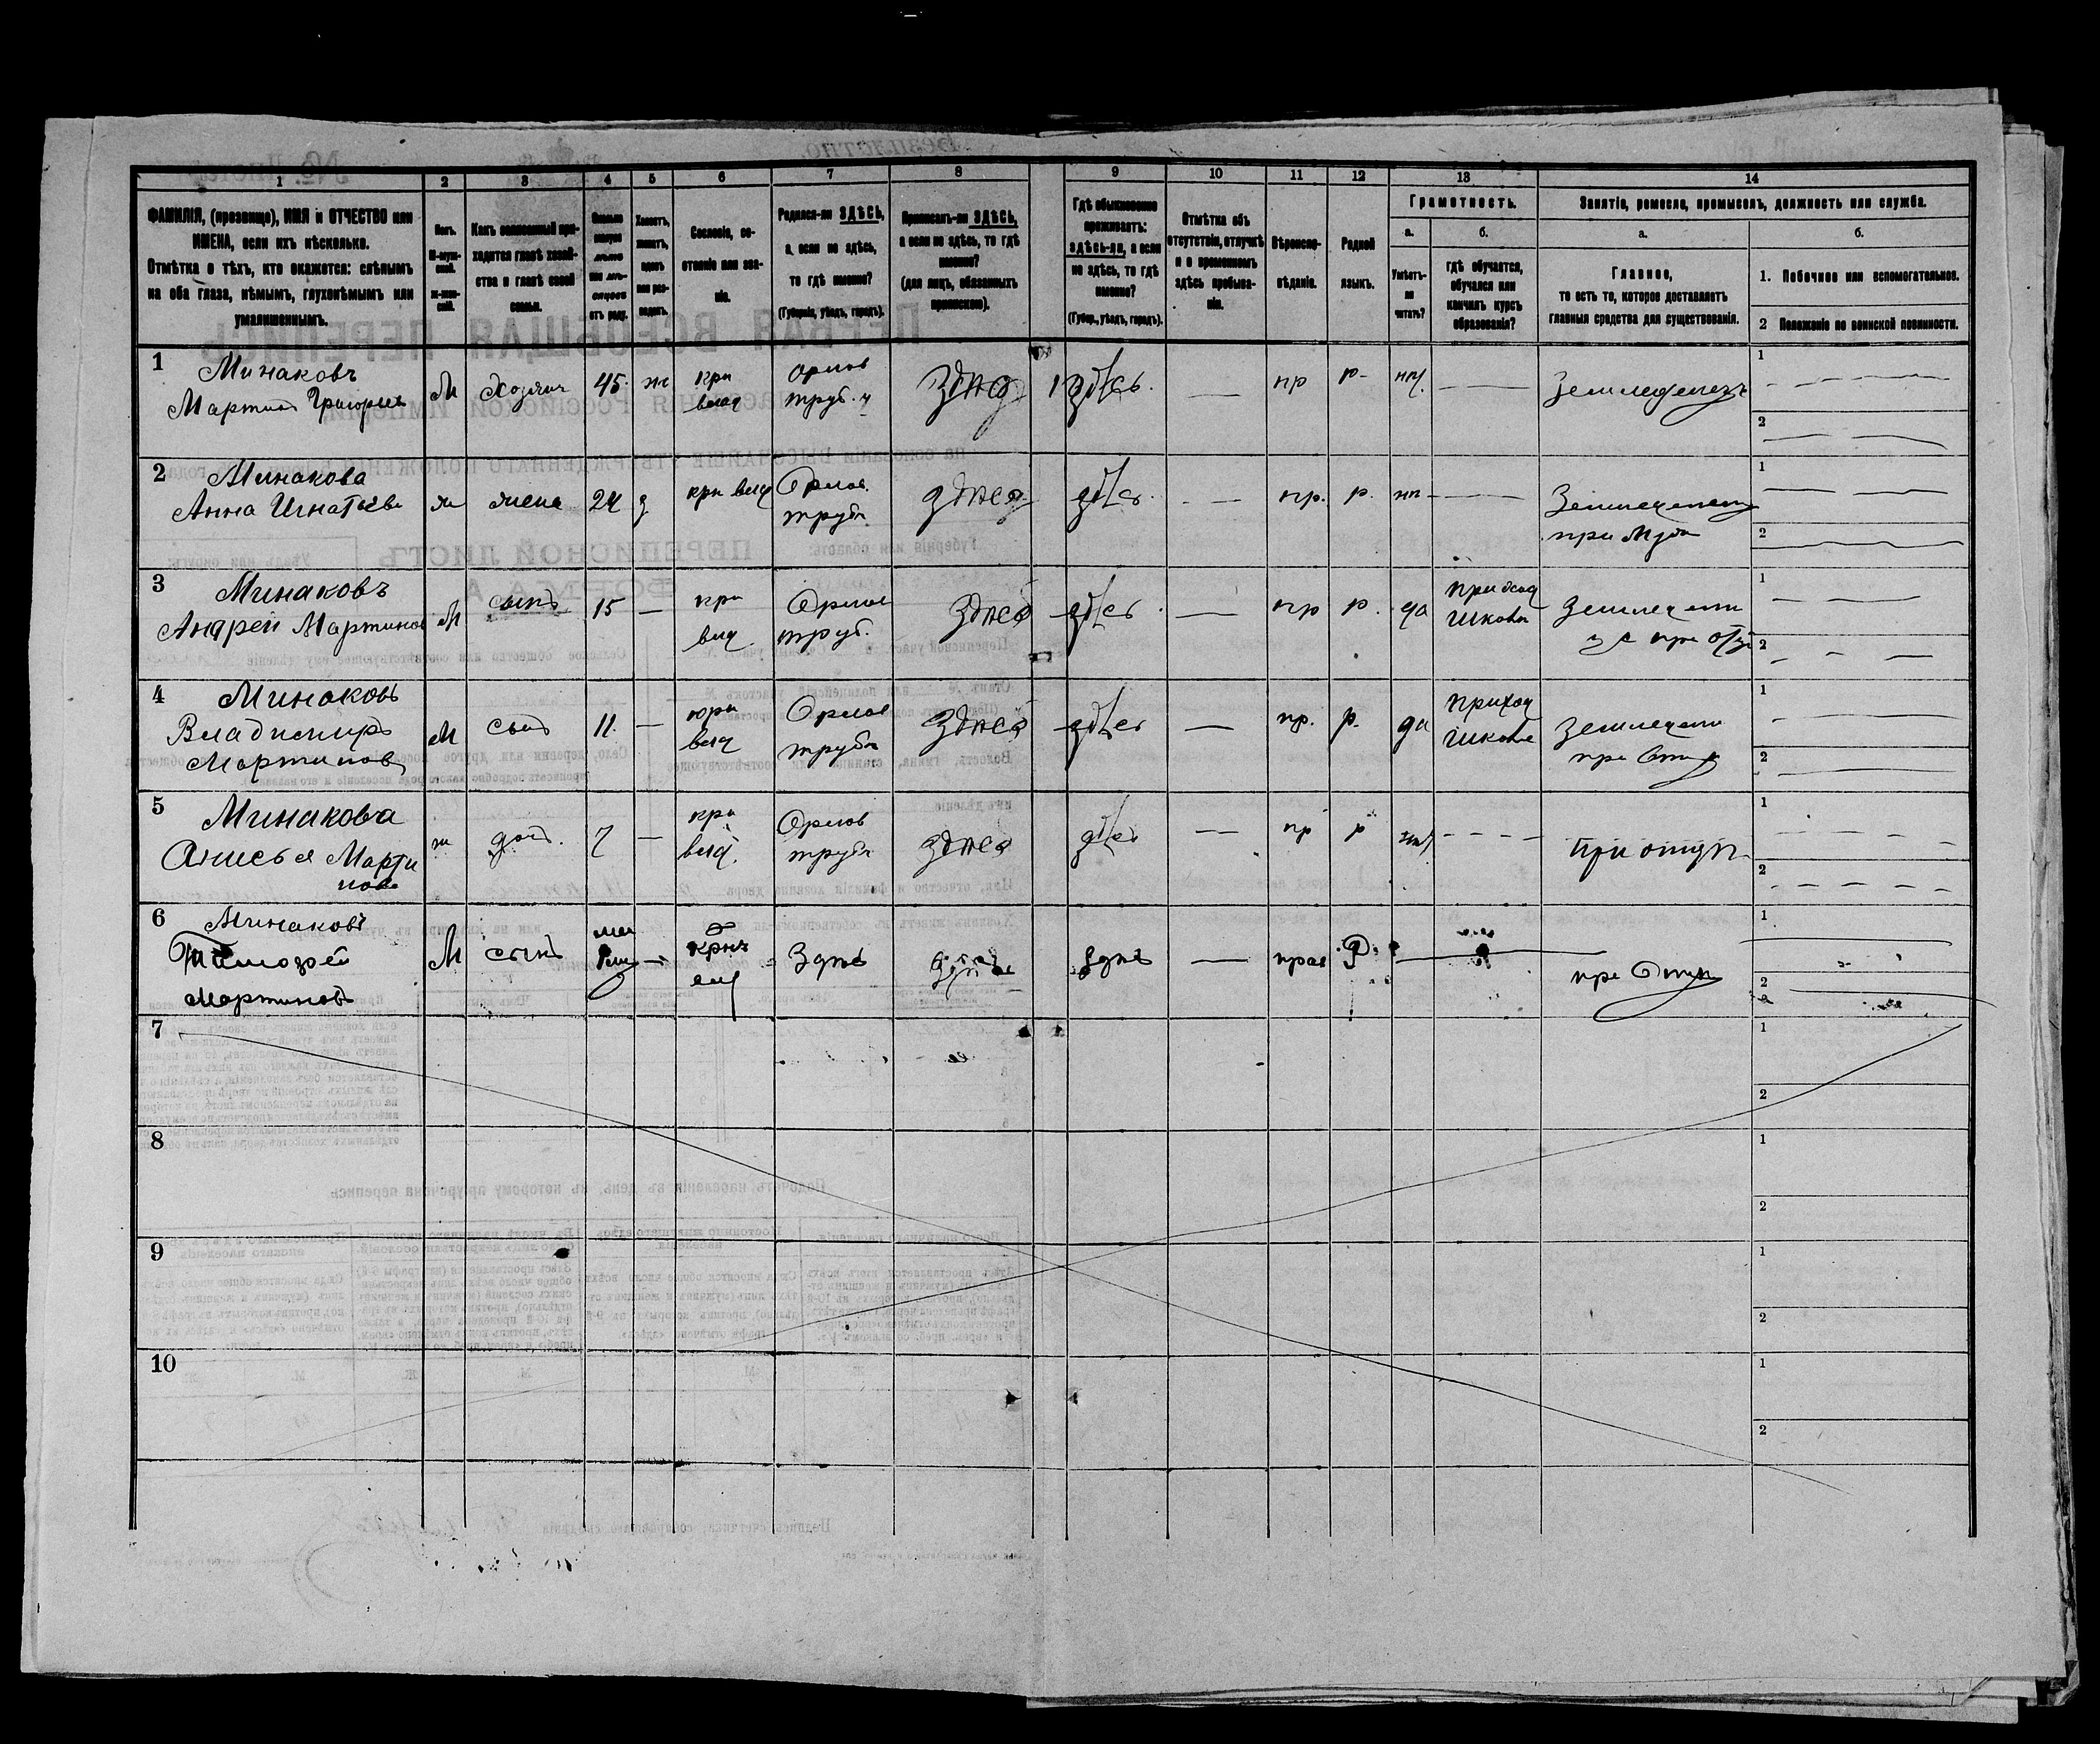 1 2 3 4 5 6 7 8 9 10 11 12 13 14
ФАМИЛІЯ, (прозвище), ИМЯ и ОТЧЕСТВО или
ИМЕНА, если ихъ нѣсколько.
Отмѣтка о тѣхъ, кто окажется: слѣпымъ
на оба глаза, нѣмымъ, глухонѣмымъ или
умалишеннымъ.
Полъ.
М-муж-
ской.
ж-жен-
скій.
Какъ записанный при-
ходится главѣ хозяй-
ства и главѣ своей
семьи.
Сколько
минуло
лѣтъ
или мѣ-
сяцевъ
отъ роду.
Холостъ,
женатъ,
вдовъ
или раз-
веденъ.
Сословіе, со-
стояніе или зва-
ніе.
Родился-ли ЗДѢСЬ,
а если не здѣсь,
то гдѣ именно?
(Губернія, уѣздъ, городъ).
Приписанъ-ли ЗДѢСЬ,
а если не здѣсь, то гдѣ
именно?
(для лицъ, обязанныхъ
припискою).
Гдѣ обыкновенно
проживаетъ:
здѣсь-ли, а если
не здѣсь, то гдѣ
именно?
(Губер., уѣздъ, городъ).
Отмѣтка объ
отсутствіи, отлучкѣ
и о временномъ
здѣсь пребыва-
ніи.
Вѣроиспо-
вѣданіе.
Родной
языкъ.
Грамотность.
а.
Умѣетъ-
ли
читать?
б.
гдѣ обучается,
обучался или
кончилъ курсъ
образованія?
Занятіе, ремесло, промыселъ, должность или служба.
а.
Главное,
то есть то, которое доставляетъ
главныя средства для существованія.
б.
1. Побочное или вспомогательное.
2 Положеніе по воинской повинности.
1 Минаковъ
Мартинъ Григорьев
М Хозяин 45 ж
кри
влад
Орлов
труб. у
Здѣсь
здѣсь
— пр р. —
Земледелецъ
1
2
2 Минакова
Анна Игнатьева
ж жена 24 з
кри влад
Орлов.
трубч
здѣсь
здѣсь
— пр. р. —
Земледелец
при Мужѣ
1
2
3 Минаковъ
Андрей Мартинов
М сынъ 15 —
кри
влд
Орлов
труб.
здѣсь
здѣсь
— пр р. да
приход
школы
1
2
4 Минаковъ
Владимиръ
Мартинов
М сынъ 11 —
влад
Орлов
трубч
здѣсь
здѣсь
— пр. р. да
приход
школе
при Отцѣ
1
2
5 Минакова
Анисья Марти
нова
ж доч. 7 —
кри
влад.
Орлов
трубч
здѣсь
здѣсь
— пр р
при отцѣ
1
2
6 Минаковъ
Тимофей
Мартиновъ
М сынъ
Здѣсь
здѣсь
здѣсь
— прав Р.
при Отцѣ
1
2
7
1
2
8
1
2
9
1
2
10
1
2